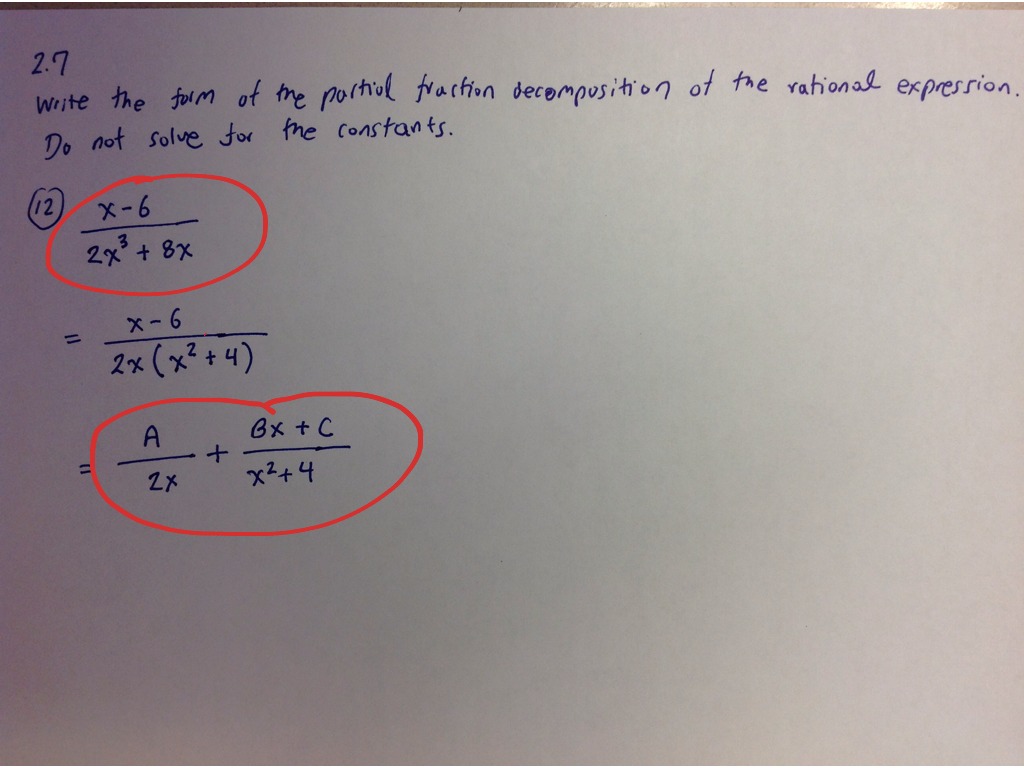 2.7
Write the form of the partial fraction decomposition of the rational expression.
Do not solve for the constants.
(12) x-6 / 2x³ + 8x
= x-6 / 2x(x²+4)
= A / 2x + Bx + C / x²+4